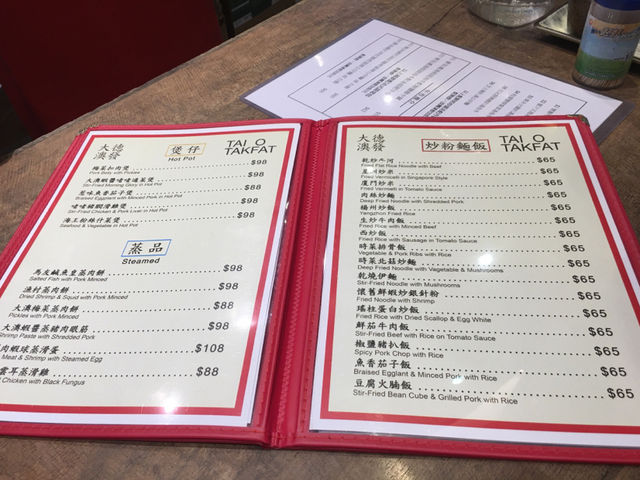 大德
澳發
煲仔
Hot Pot
TAI O
TAKFAT
梅菜扣肉煲 $98
Pork Belly with Pickles
大澳蝦醬啫啫通菜煲 $88
Stir-Fried Morning Glory in Hot Pot
惹味魚香茄子煲 $88
Braised Eggplant with Minced Pork in Hot Pot
啫啫豬膶滑雞煲 $98
Stir-Fried Chicken & Pork Liver in Hot Pot
海皇粉絲什菜煲 $98
Seafood & Vegetable in Hot Pot
蒸品
Steamed
馬友鹹魚皇蒸肉餅 $98
Salted Fish with Pork Minced
漁村蒸肉餅 $98
Dried Shrimp & Squid with Pork Minced
大澳梅菜蒸肉餅 $88
Pickles with Pork Minced
大澳蝦醬蒸豬肉眼筋 $98
Shrimp Paste with Shredded Pork
肉蝦球蒸滑蛋 $108
Meat & Shrimp with Steamed Egg
雲耳蒸滑雞 $88
Chicken with Black Fungus
大德
澳發
炒粉麵飯
TAI O
TAKFAT
乾炒牛河 $65
Fried Flat Rice Noodle with Beef
星洲炒米 $65
Fried Vermicelli in Singapore Style
廈門炒米 $65
Fried Vermicelli in Tomato Sauce
肉絲炒麵 $65
Deep Fried Noodle with Shredded Pork
揚州炒飯 $65
Yangzhou Fried Rice
生炒牛肉飯 $65
Fried Rice with Minced Beef
西炒飯 $65
Fried Rice with Sausage in Tomato Sauce
時菜排骨飯 $65
Vegetable & Pork Ribs with Rice
時菜北菇炒麵 $65
Deep Fried Noodle with Vegetable & Mushrooms
乾燒伊麵 $65
Stir-Fried Noodle with Mushrooms
懷舊鮮蝦炒銀針粉 $65
Fried Noodle with Shrimp
瑤柱蛋白炒飯 $65
Fried Rice with Dried Scallop & Egg White
鮮茄牛肉飯 $65
Stir-Fried Beef with Rice on Tomato Sauce
椒鹽豬扒飯 $65
Spicy Pork Chop with Rice
魚香茄子飯 $65
Braised Egglant & Minced Pork with Rice
豆腐火腩飯 $65
Stir-Fried Bean Cube & Grilled Pork with Rice